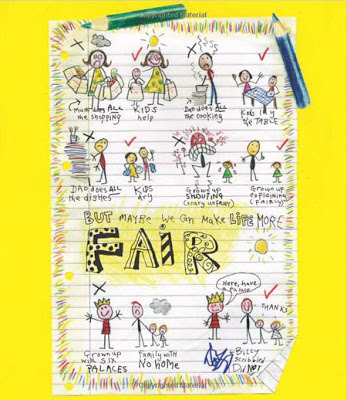 Copyrighted Material
Mum does ALL the shopping
KIDS help
Dad does ALL the cooking
Kids lay the TABLE
DAD does ALL the dishes
KIDS dry
Grown up SHOUTING (scary unfair)
Grown up explaining (FAIRLY)
BUT MAYBE We Can Make LIFE MORE
FAIR
Here, have a palace
THANKS
Grown up with SIX PALACES
Family with No home
Bizzy scribbled
Did NOT
Copyrighted Material